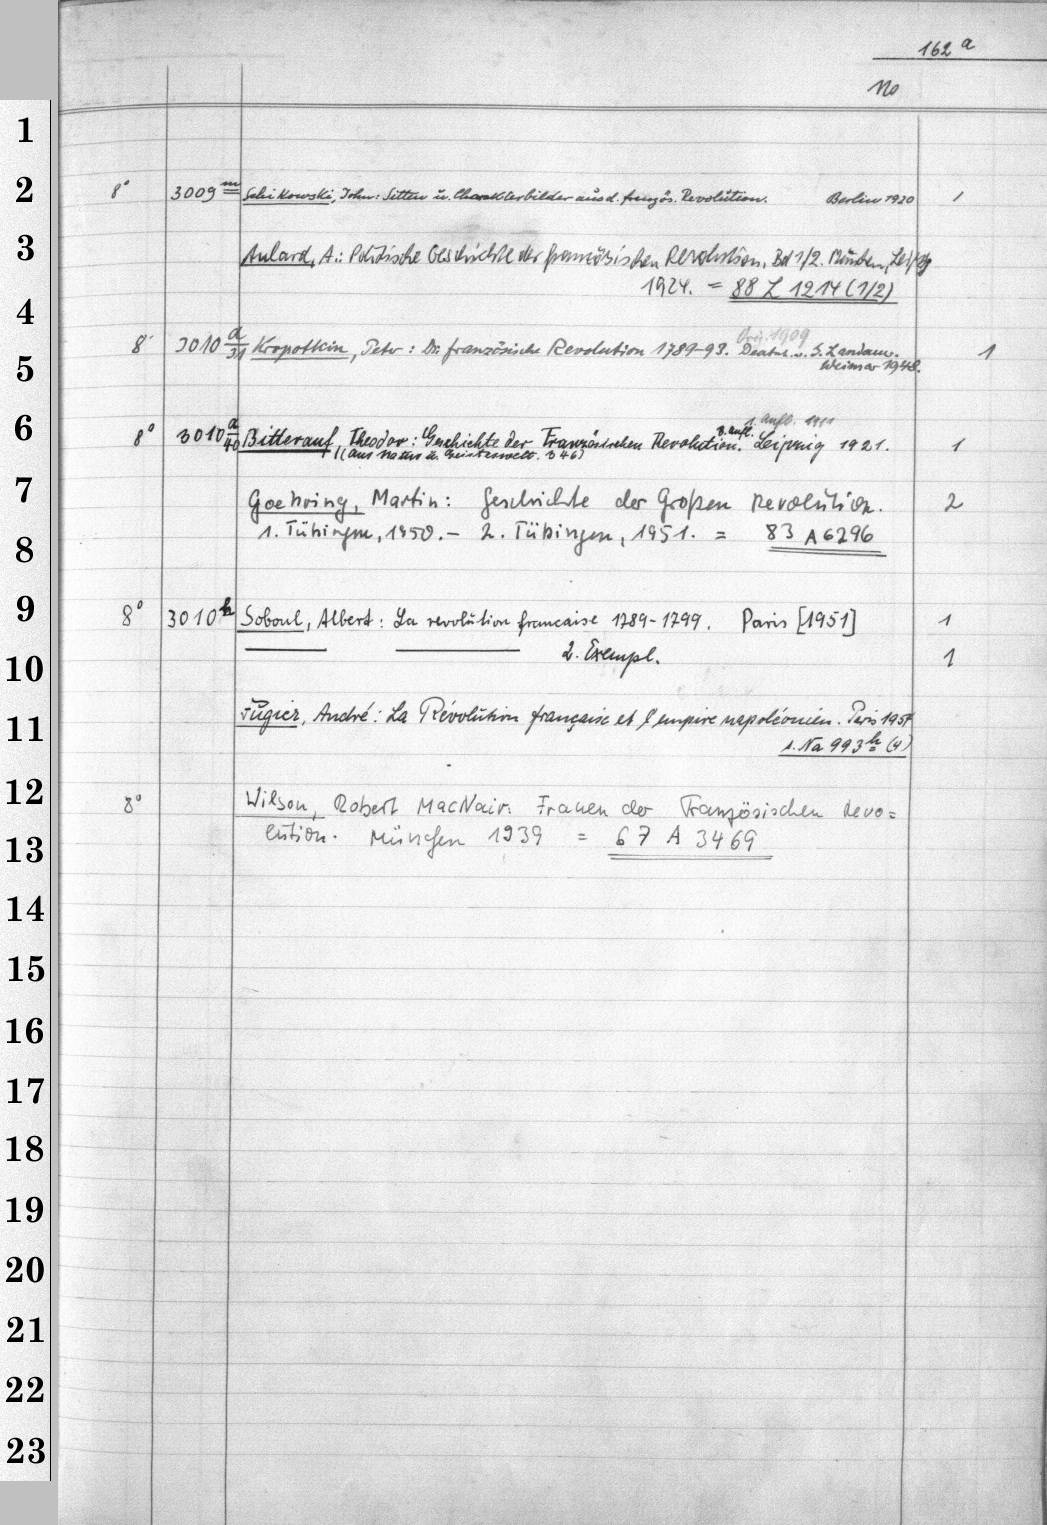 162 a
No
1
2 8° 3009 m Schikowski, John: Sitten u. Charakterbilder aus d. französ. Revolution. Berlin 1920 1
3 Aulard, A.: Politische Geschichte der französischen Revolution. Bd 1/2. München, Leipzig
1924. = 88 Z 1214 (1/2)
4
Orig. 1909
8° 3010 a/31 Kropotkin, Petr: Die französische Revolution 1789-93. Deutsch v. G. Landauer. 1
5 Weimar 1948.
1. Aufl. 1911
3. Aufl.
6 8° 3010 a/40 Bitterauf, Theodor: Geschichte der Französischen Revolution. Leipzig 1921. 1
(Aus Natur u. Geisteswelt. 346)
7 Goehring, Martin: Geschichte der Großen Revolution. 2
8 1. Tübingen, 1950. - 2. Tübingen, 1951. = 83 A 6296
9 8° 3010 h Soboul, Albert: La revolution francaise 1789-1799. Paris [1951] 1
10 2. Exempl. 1
11 Fugier, André: La Révolution française et l'empire napoléonien. Paris
s. Na 993 h (4)
12 8° Wilson, Robert MacNair: Frauen der Französischen Revo=
13 lution. München 1939 = 67 A 3469
14
15
16
17
18
19
20
21
22
23